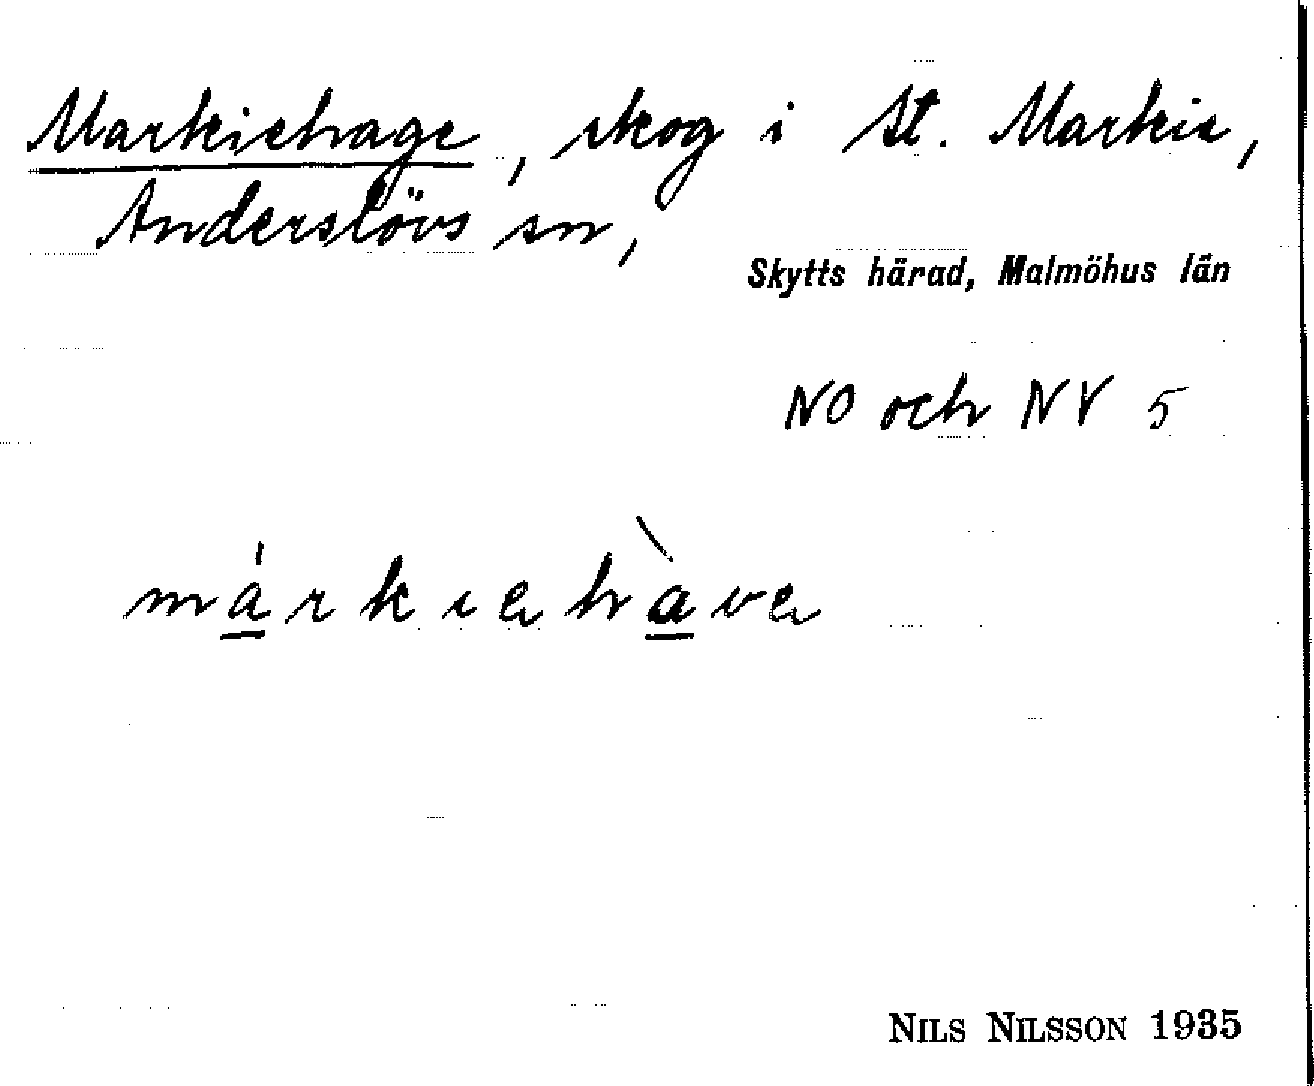 Markiehage, skog i St. Markie,
Anderslövs sn,
Skytts härad, Malmöhus län
NO och NV 5
márkıehàve
NILS NILSSON 1935